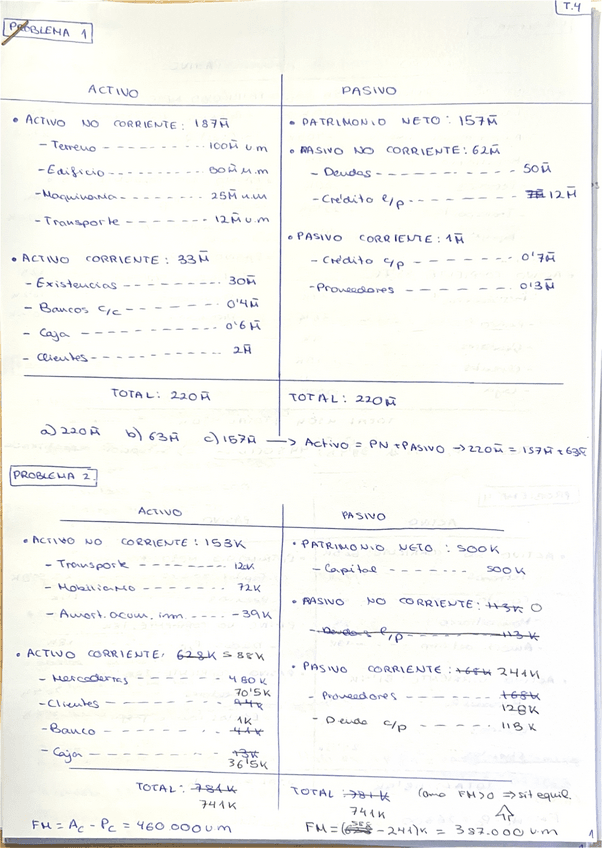 T.4
PROBLEMA 1
ACTIVO
PASIVO
• ACTIVO NO CORRIENTE: 187M̄
- Terreno - - - - - - - - - 100M̄ u m
- Edificio - - - - - - - - - 50M̄ u.m
- Maquinaria - - - - - - - - 25M̄ u.m
- Transporte - - - - - - - - 12M̄ u.m
• ACTIVO CORRIENTE: 33M̄
- Existencias - - - - - - - - 30M̄
- Bancos c/c - - - - - - - - 0'4M̄
- Caja - - - - - - - - - - - 0'6M̄
- Clientes - - - - - - - - - 2M̄
TOTAL: 220M̄
• PATRIMONIO NETO: 157M̄
• PASIVO NO CORRIENTE: 62M̄
- Deudas - - - - - - - - - - 50M̄
- Crédito l/p - - - - - - - - 12M̄
• PASIVO CORRIENTE: 1M̄
- Crédito c/p - - - - - - - - 0'7M̄
- Proveedores - - - - - - - - 0'3M̄
TOTAL: 220M̄
a) 220M̄ b) 63M̄ c) 157M̄ → Activo = PN + PASIVO → 220M̄ = 157M̄ + 63M̄
PROBLEMA 2.
ACTIVO
PASIVO
• ACTIVO NO CORRIENTE: 153K
- Transporte - - - - - - - 12K
- Mobiliario - - - - - - - 72K
- Amort. acum. inm. - - - - - -39K
• ACTIVO CORRIENTE: 628K 588K
- Mercaderías - - - - - - - 480K
70'5K
- Clientes - - - - - - - - 94K
1K
- Banco - - - - - - - - - 41K
- Caja - - - - - - - - - 13K
36'5K
TOTAL: 781K
741K
FM = Ac - Pc = 460 000 u m
• PATRIMONIO NETO: 500K
- Capital - - - - - - - 500K
• PASIVO NO CORRIENTE: 113K 0
- Deudas l/p - - - - - - - 113K
• PASIVO CORRIENTE: 168K 241K
- Proveedores - - - - - - - 168K
128K
- Deuda c/p - - - - - - 113K
TOTAL: 781K Como FM>0 ⇒ sit equil.
741K
FM = (628 588 - 241)K = 387.000 u m
1